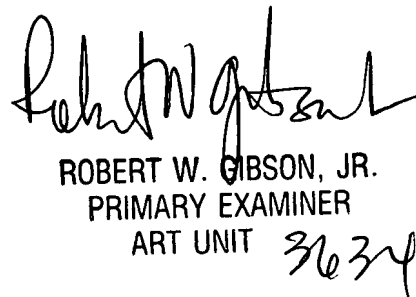 Robert W Gibson Jr
ROBERT W. GIBSON, JR.
PRIMARY EXAMINER
ART UNIT 3634